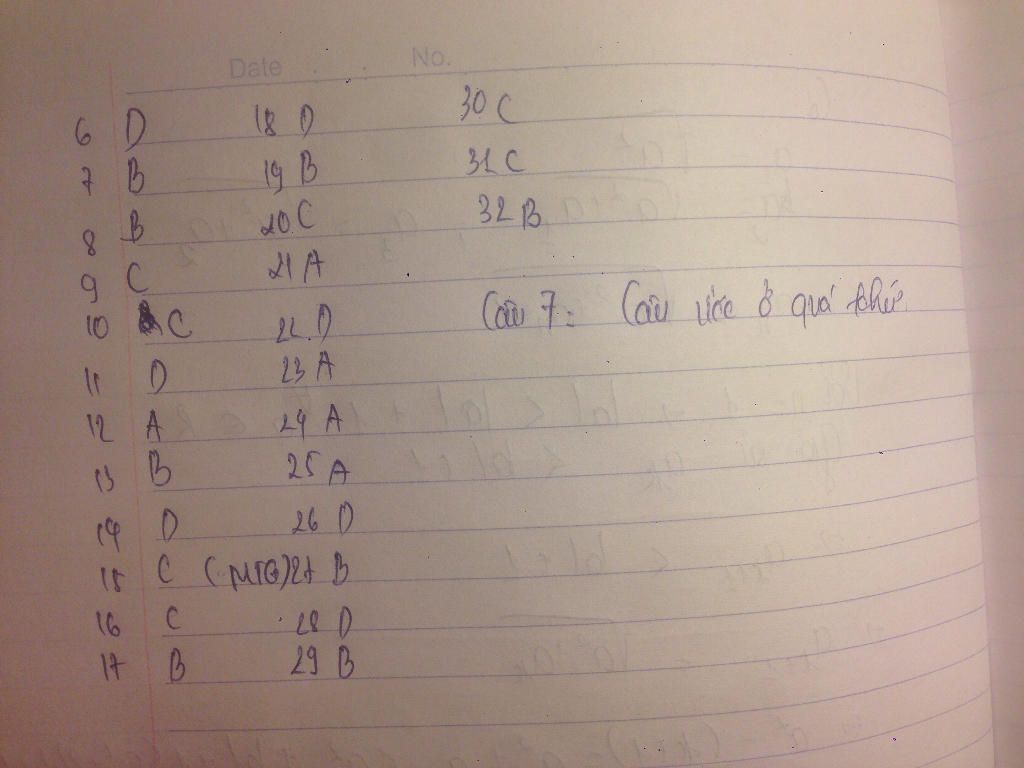 Date No.
6 D 18 D 30 C
7 B 19 B 31 C
8 B 20 C 32 B
9 C 21 A
10 C 22 D Câu 7: Câu ước ở quá khứ
11 D 23 A
12 A 24 A
13 B 25 A
14 D 26 D
15 C (MTG) 27 B
16 C 28 D
17 B 29 B